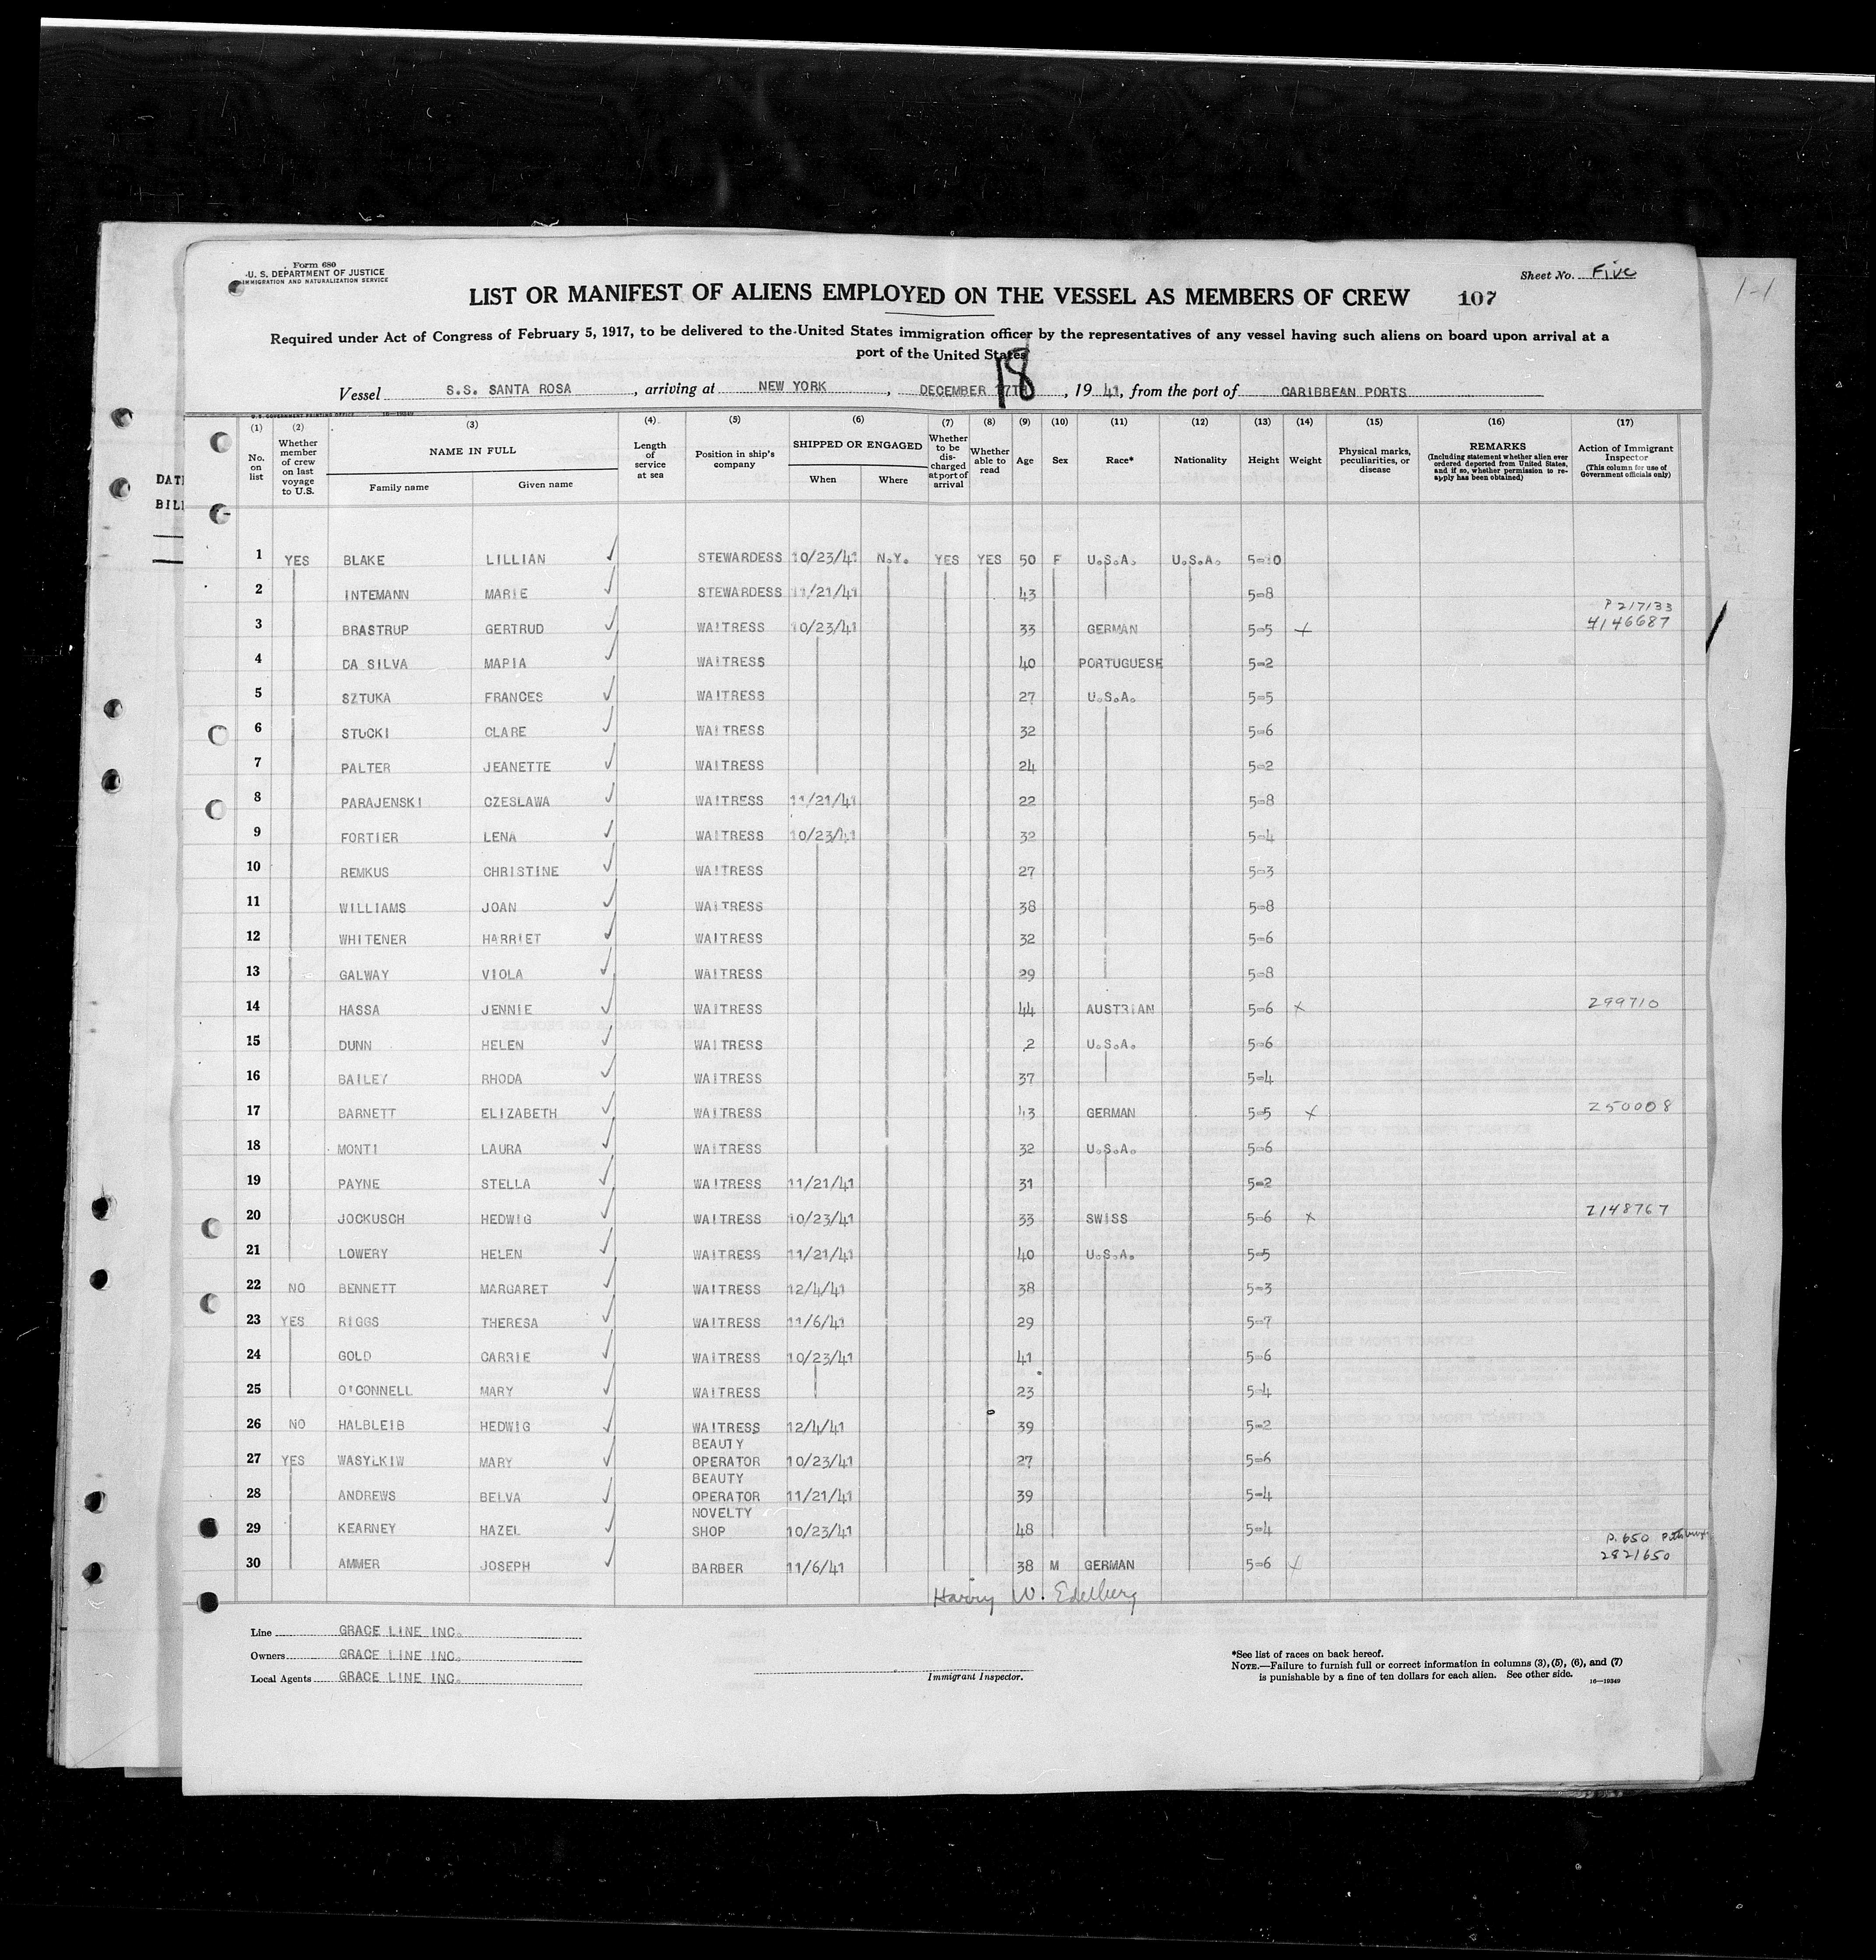 Form 680
U. S. DEPARTMENT OF JUSTICE
IMMIGRATION AND NATURALIZATION SERVICE
Sheet No. Five
LIST OR MANIFEST OF ALIENS EMPLOYED ON THE VESSEL AS MEMBERS OF CREW 107
1-1
Required under Act of Congress of February 5, 1917, to be delivered to the United States immigration officer by the representatives of any vessel having such aliens on board upon arrival at a
port of the United States
18
Vessel S.S. SANTA ROSA, arriving at NEW YORK, DECEMBER 17TH, 1941, from the port of CARIBBEAN PORTS
U. S. GOVERNMENT PRINTING OFFICE 16—19349
(1) (2) (3) (4) (5) (6) (7) (8) (9) (10) (11) (12) (13) (14) (15) (16) (17)
No. on list
Whether member of crew on last voyage to U.S.
NAME IN FULL
Family name Given name
Length of service at sea
Position in ship's company
SHIPPED OR ENGAGED
When Where
Whether to be discharged at port of arrival
Whether able to read
Age
Sex
Race*
Nationality
Height
Weight
Physical marks, peculiarities, or disease
REMARKS
(Including statement whether alien ever ordered deported from United States, and if so, whether permission to re-apply has been obtained)
Action of Immigrant Inspector
(This column for use of Government officials only)
DATE
BILL
1 YES BLAKE LILLIAN STEWARDESS 10/23/41 N.Y. YES YES 50 F U.S.A. U.S.A. 5-10
2 INTEMANN MARIE STEWARDESS 11/21/41 43 5-8
P 217133
3 BRASTRUP GERTRUD WAITRESS 10/23/41 33 GERMAN 5-5 x 4146687
4 DA SILVA MARIA WAITRESS 40 PORTUGUESE 5-2
5 SZTUKA FRANCES WAITRESS 27 U.S.A. 5-5
6 STUCKI CLARE WAITRESS 32 5-6
7 PALTER JEANETTE WAITRESS 24 5-2
8 PARAJENSKI CZESLAWA WAITRESS 11/21/41 22 5-8
9 FORTIER LENA WAITRESS 10/23/41 32 5-4
10 REMKUS CHRISTINE WAITRESS 27 5-3
11 WILLIAMS JOAN WAITRESS 38 5-8
12 WHITENER HARRIET WAITRESS 32 5-6
13 GALWAY VIOLA WAITRESS 29 5-8
14 HASSA JENNIE WAITRESS 44 AUSTRIAN 5-6 x 299710
15 DUNN HELEN WAITRESS 2 U.S.A. 5-6
16 BAILEY RHODA WAITRESS 37 5-4
17 BARNETT ELIZABETH WAITRESS 43 GERMAN 5-5 x 250008
18 MONTI LAURA WAITRESS 32 U.S.A. 5-6
19 PAYNE STELLA WAITRESS 11/21/41 31 5-2
20 JOCKUSCH HEDWIG WAITRESS 10/23/41 33 SWISS 5-6 x 2148767
21 LOWERY HELEN WAITRESS 11/21/41 40 U.S.A. 5-5
22 NO BENNETT MARGARET WAITRESS 12/4/41 38 5-3
23 YES RIGGS THERESA WAITRESS 11/6/41 29 5-7
24 GOLD CARRIE WAITRESS 10/23/41 41 5-6
25 O'CONNELL MARY WAITRESS 23 5-4
26 NO HALBLEIB HEDWIG WAITRESS 12/4/41 39 5-2
27 YES WASYLKIW MARY BEAUTY OPERATOR 10/23/41 27 5-6
28 ANDREWS BELVA BEAUTY OPERATOR 11/21/41 39 5-4
29 KEARNEY HAZEL NOVELTY SHOP 10/23/41 48 5-4
P. 650 Pittsburgh
30 AMMER JOSEPH BARBER 11/6/41 38 M GERMAN 5-6 x 2821650
Harry W. Edelberg
Line GRACE LINE INC.
Owners GRACE LINE INC.
Local Agents GRACE LINE INC.
Immigrant Inspector.
*See list of races on back hereof.
NOTE.—Failure to furnish full or correct information in columns (3), (5), (6), and (7)
is punishable by a fine of ten dollars for each alien. See other side.
16—19349